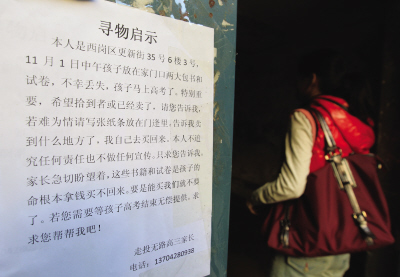 寻物启示
本人是西岗区更新街35号6楼3号,
11月1日中午孩子放在家门口两大包书和
试卷,不幸丢失,孩子马上高考了,特别重
要,希望拾到者或已经卖了,请您告诉我,
若难为情请写张纸条放在门逢里,告诉我卖
到什么地方了,我自己去买回来,本人不追
究任何责任也不做任何宣传。只求您告诉我,
家长急切盼望着,这些书籍和试卷是孩子的
命根本拿钱买不回来。要是能买我们就不要
了。若您需要等孩子高考结束无偿提供。求
求您帮帮我吧!
走投无路高三家长
电话:13704280938